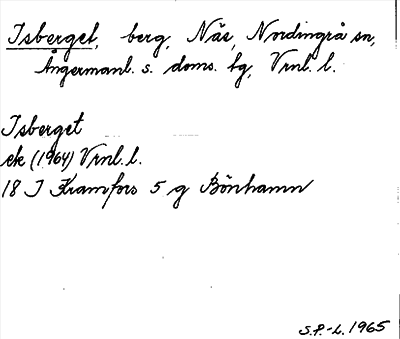 Isberget, berg, Näs, Nordingrå sn,
Ångermanl. s. doms. tg, Vrnl. l.
Isberget
ek (1964) Vrnl. l.
18 I Kramfors 5 g Bönhamn
S.P.-L. 1965